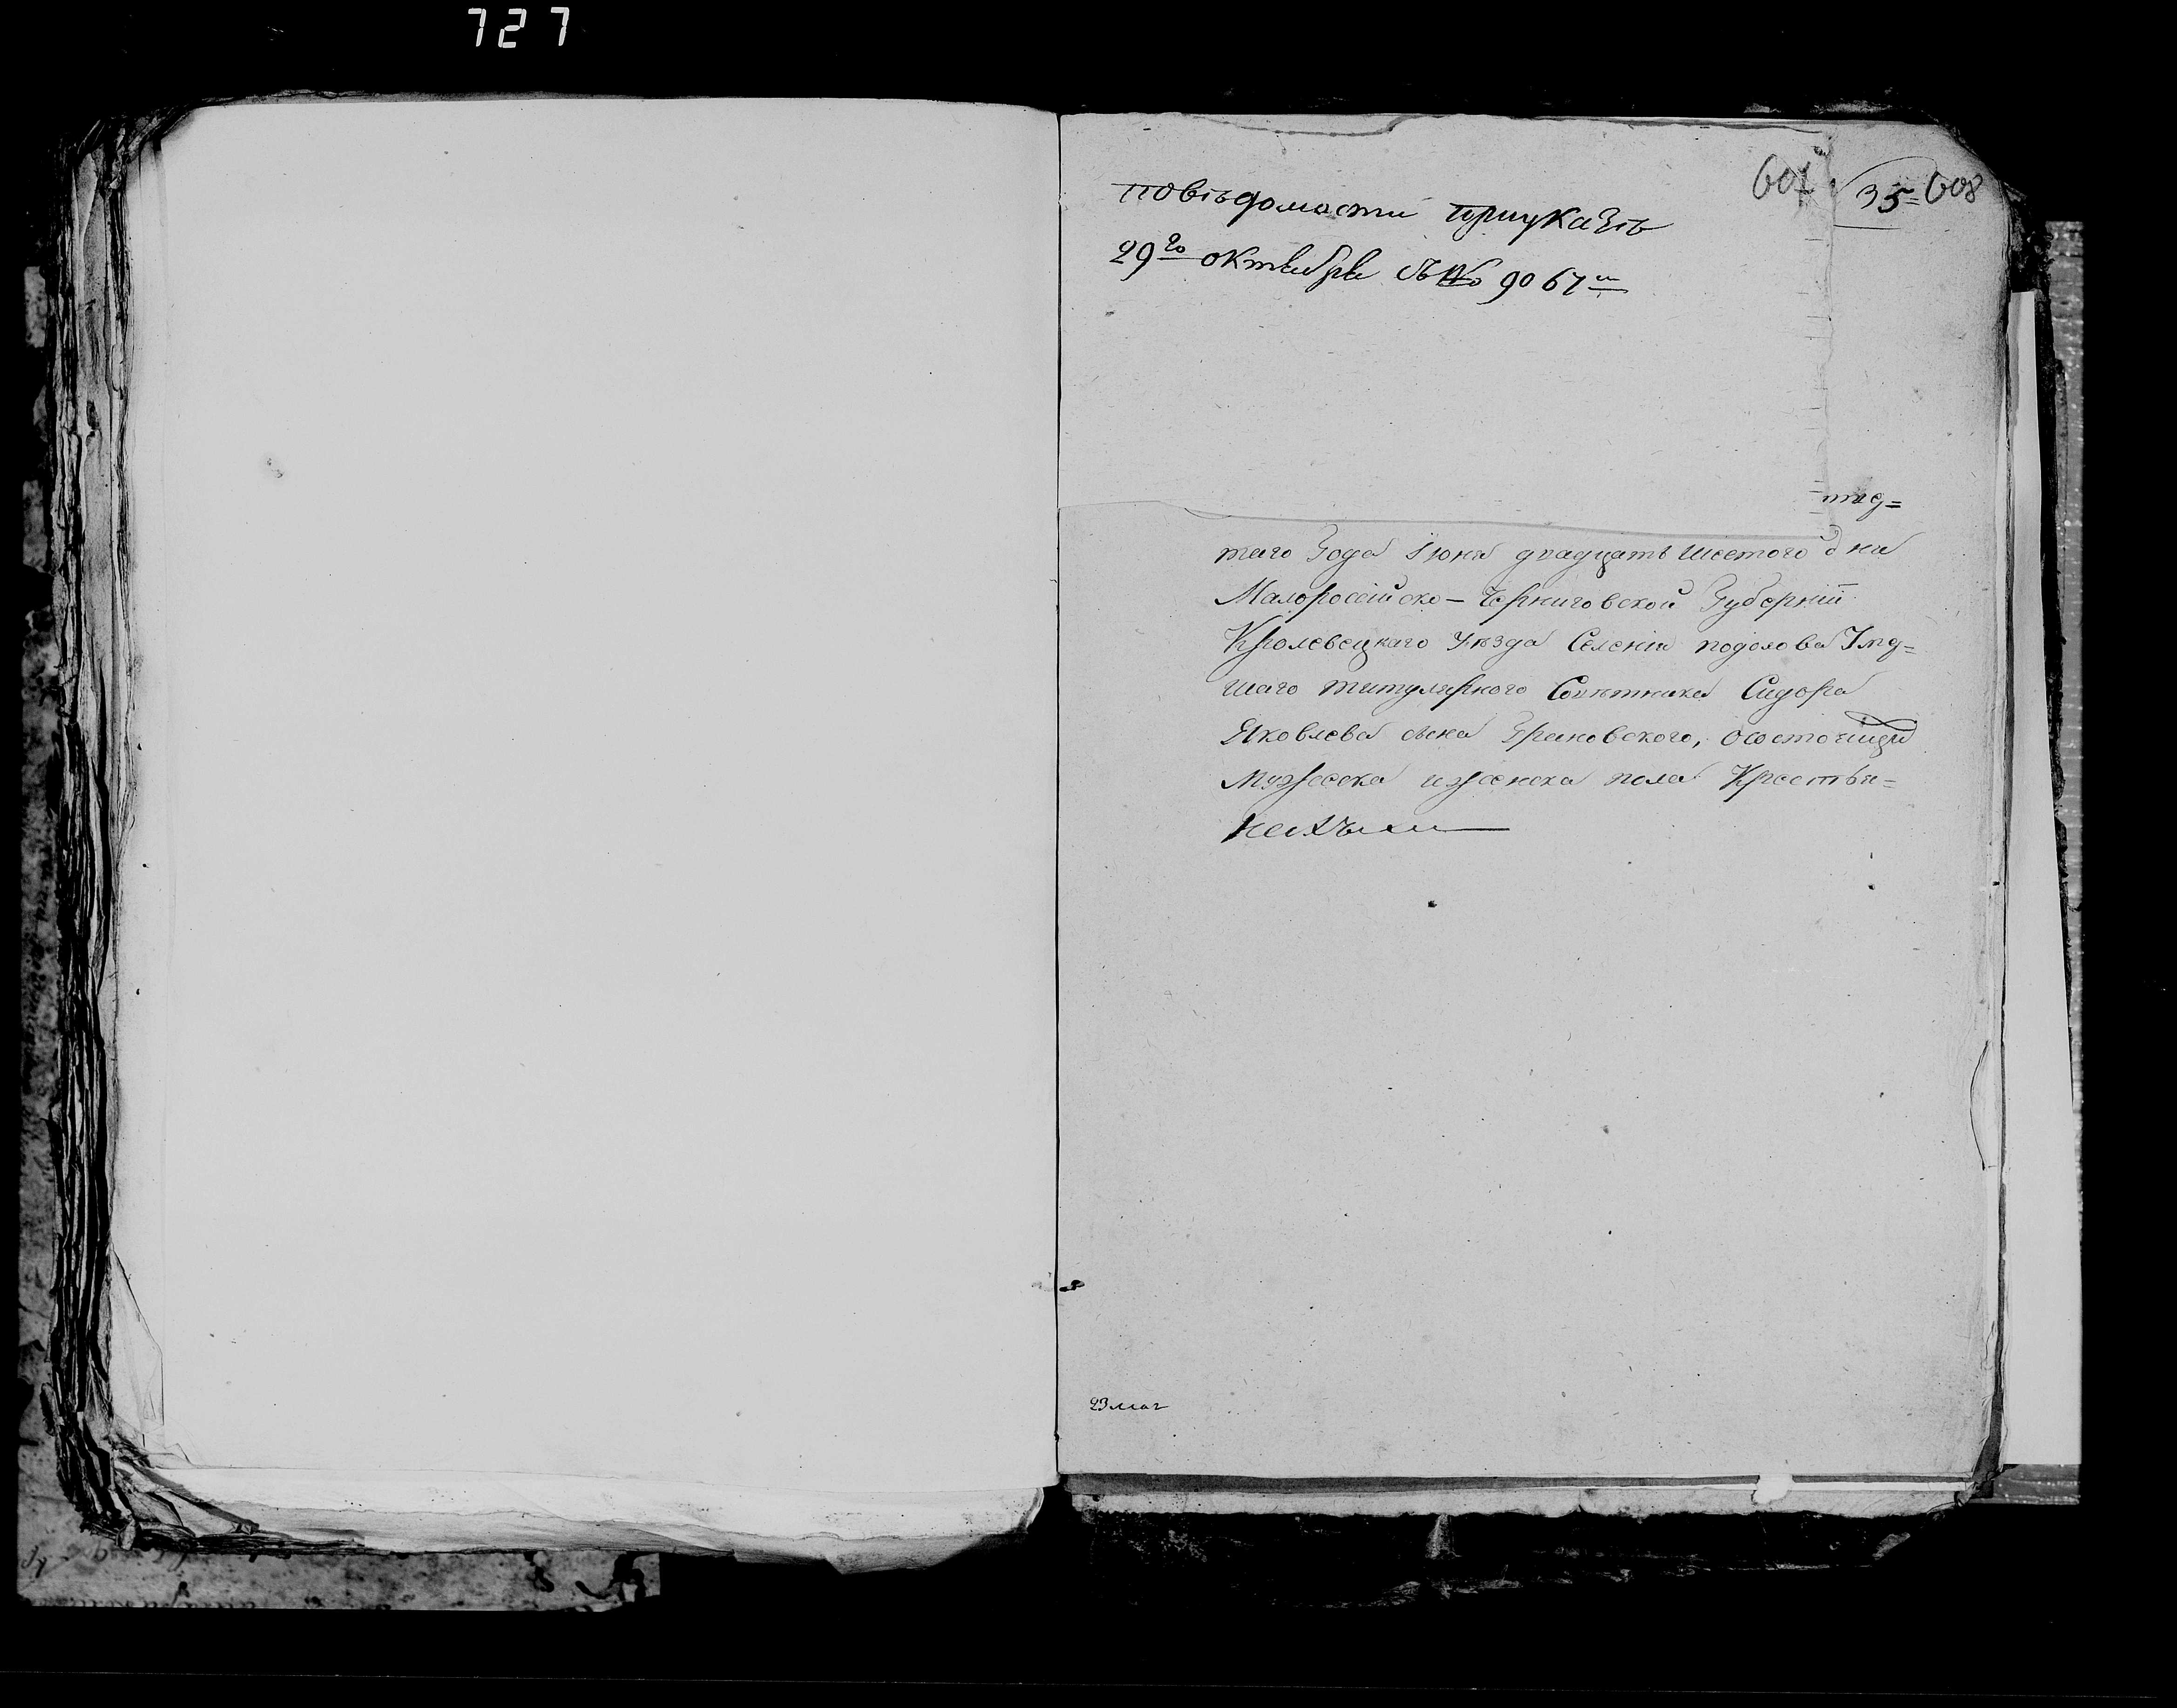 727
607 35= 608
повѣдомости приуказѣ
29го октебря съ № 9067м
таго Года Iюня двадцать шестого дня
Малоросійско-Черниговской Губерніи
Кролевецкаго Уѣзда Селенія подолова
шаго титулярного Совѣтника Сидора
Яковлева сына Грановского, Осостоящи
Мужеска иженска пола Крестья=
нахъ